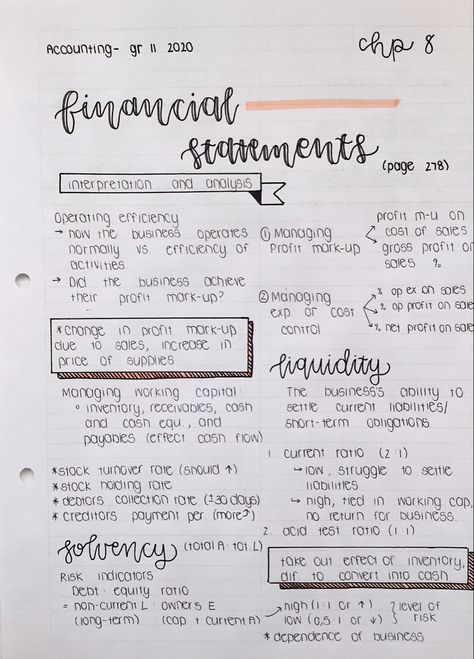 Accounting- gr 11 2020
chp 8
financial
statements
(page 278)
interpretation and analysis
Operating efficiency
→ how the business operates
normally vs. efficiency of
activities
→ Did the business achieve
their profit mark-up?
*change in profit mark-up
due to sales, increase in
price of supplies
Managing working capital:
° inventory, receivables, cash
and cash equ., and
payables (effect cash flow)
*stock turnover rate (should ↑)
*stock holding rate
*debtors collection rate (±30 days)
*creditors payment per. (more↑)
solvency (total A : tot. L)
Risk indicators
Debt : equity ratio
= non-current L : owners E
(long-term) : (cap + current A)
→ high (1:1 or ↑) } level of
low (0,5:1 or ↓) } risk
* dependence of business
① Managing
Profit mark-up
profit m-u on
cost of sales
gross profit on
sales %
② Managing
exp or cost
control
% op ex on sales
% op profit on sale
% net profit on sale
liquidity
The business's ability to
settle current liabilities/
short-term obligations.
1. current ratio (2:1)
↳ low, struggle to settle
liabilities
↳ high, tied in working cap,
no return for business.
2. acid test ratio (1:1)
take out effect of inventory,
dif. to convert into cash